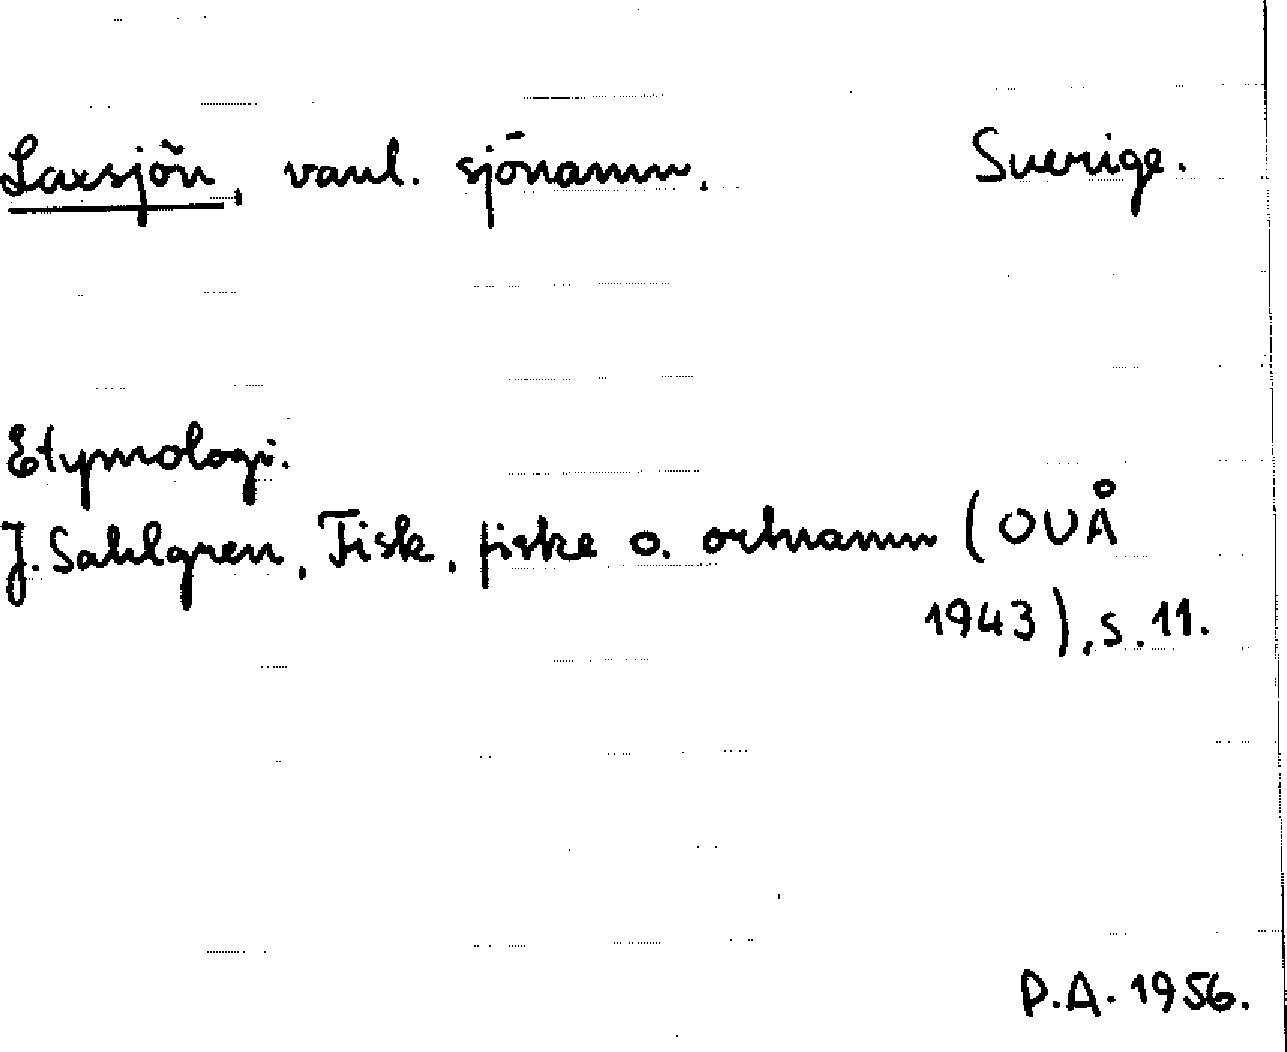 Laxsjön, vanl. sjönamn. Sverige.
Etymologi.
J. Sahlgren, Fisk, fiske o. ortnamn (OUÅ
1943), s. 11.
P.A. 1956.